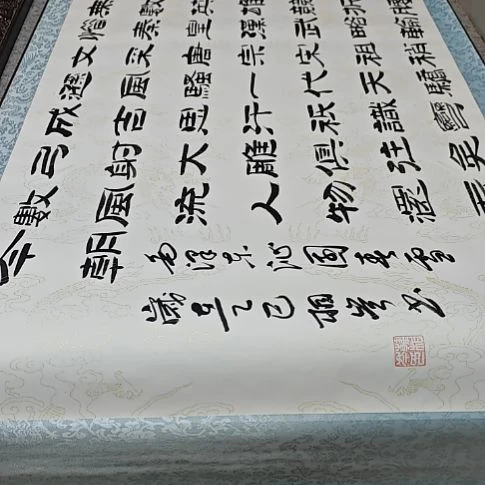 惜秦皇漢武略輸
文采唐宗宋祖稍
遜風騷一代天驕
成吉思汗祇識彎
弓射大雕俱往矣
數風流人物還看
今朝
毛澤東沁園春雪
歲在乙巳